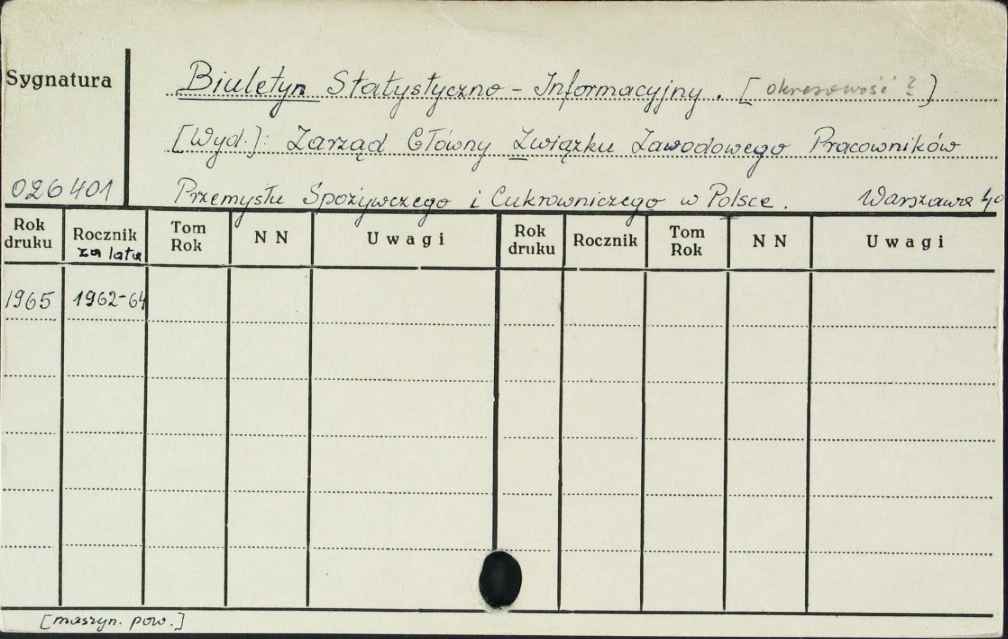 Sygnatura
Biuletyn Statystyczno - Informacyjny. [okresowość?]
[Wyd.]: Zarząd Główny Związku Zawodowego Pracowników
026401 Przemysłu Spożywczego i Cukrowniczego w Polsce. Warszawa 40
Rok druku Rocznik za lata Tom Rok NN Uwagi Rok druku Rocznik Tom Rok NN Uwagi
1965 1962-64
[maszyn. pow.]